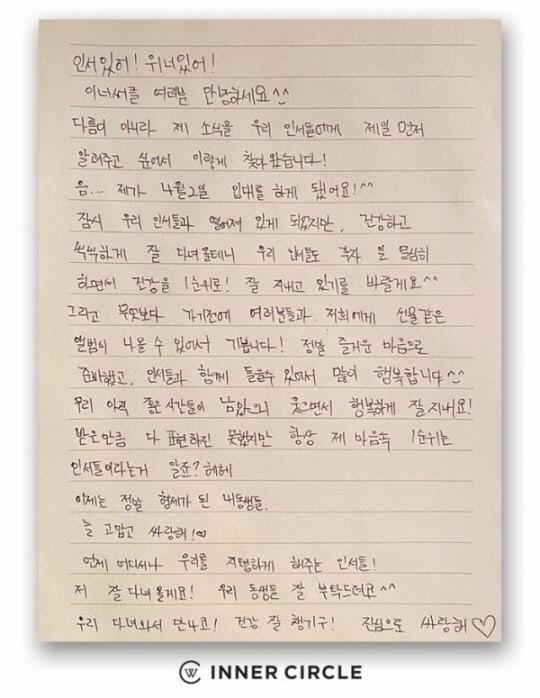 인서있어! 위너있어!
이너써클 여러분 안녕하세요^^
다름이 아니라 제 소식을 우리 인서들에게 제일 먼저
알려주고 싶어서 이렇게 찾아왔습니다!
음.... 제가 4월 2일 입대를 하게 됐어요!^^
잠시 우리 인서들과 떨어져 있게 되었지만, 건강하고
씩씩하게 잘 다녀올테니 우리 인서들도 각자 일 열심히
하면서 건강을 1순위로! 잘 지내고 있기를 바랄게요^^
그리고 무엇보다 가기전에 여러분들과 저희에게 선물같은
앨범이 나올 수 있어서 기쁩니다! 정말 즐거운 마음으로
준비했고, 인서들과 함께 들을수 있어서 많이 행복합니다^^
우리 아직 좋은시간들이 남았으니 웃으면서 행복하게 잘지내요!
받은만큼 다 표현하진 못했지만 항상 제 마음속 1순위는
인서들이라는거 알죠? 헤헤
이제는 정말 형제가 된 내동생들.
늘 고맙고 싸랑해!♡
언제 어디서나 우리를 지탱하게 해주는 인서들!
저 잘 다녀올게요! 우리 동생들 잘 부탁드려요^^
우리 다녀와서 만나고! 건강 잘 챙기구! 진심으로 싸랑해♡
INNER CIRCLE